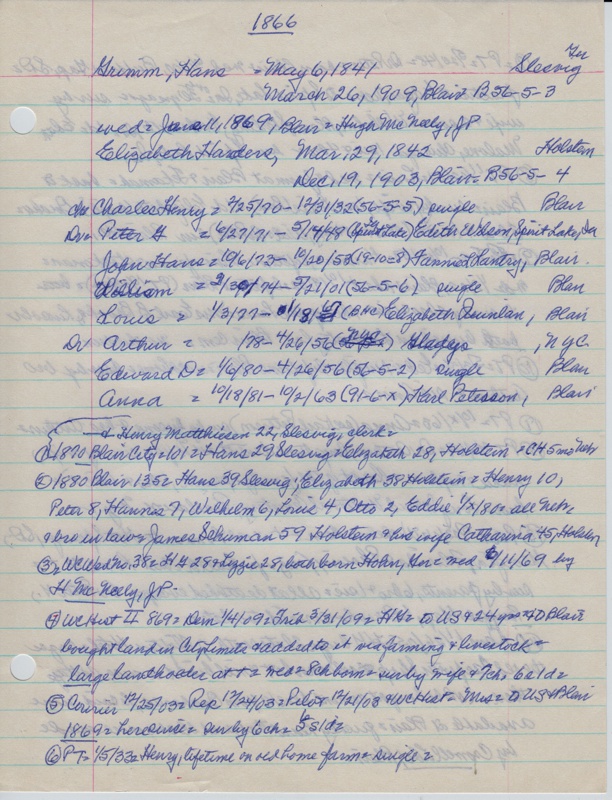 1866
Grimm, Hans = May 6, 1841 Slesvig
March 26, 1909, Blair = B56-5-3
wed = June 11, 1869, Blair = Hugh McNeely, JP
Elizabeth Harders, Mar. 29, 1842 Holstein
Dec. 19, 1903, Blair = B56-5-4
Charles Henry = 2/25/70 - 12/31/32 (56-5-5) single Blair
Dr = Peter G = 6/27/71 - 5/14/48 (Spirit Lake) Edith Wilson, Spirit Lake, Ia
John Hans = 10/6/72 - 10/20/52 (18-10-8) Fannie Lantry, Blair.
William = 74 - 5/21/01 (56-5-6) single Blair
Louis = 1/3/77 - (BHC) Elizabeth Quinlan, Blair
Dr Arthur = /78 - 4/26/56 Gladys , NYC.
Edward D = 1/6/80 - 4/26/56 (56-5-2) single Blair
Anna = 10/18/81 - 10/2/63 (91-6-x) Karl Peterson, Blair
& Henry Matthiesen 22, Slesvig, clerk =
① 1870 Blair City = 101 = Hans 29 Slesvig = Elizabeth 28, Holstein & CH 5 mo Nebr
② 1880 Blair 135 = Hans 39 Slesvig, Elizabeth 38 Holstein = Henry 10,
Peter 8, Hannes 7, Wilhelm 6, Louie 4, Otto 2, Eddie 1/x/80 = all Nebr
& bro in law = James Schuman 59 Holstein & his wife Catharina 45, Holstein
③ WC Wed no. 38 = HG 28 & Lizzie 28, both born = wed 6/11/69 by
H McNeely, JP.
④ WC Hist II 869 = Dem 1/4/09 = Trib 3/31/09 = to US @ 24 yrs & to Blair
bought land in City limits & added to it via farming & livestock =
large landholder at + = wed = 8ch born = sur by wife & 7ch = 6s 1d =
⑤ Courier 12/25/03 = Rep 12/24/03 = Pilot 12/21/03 & WC Hist = Mrs = to US & Blair
1869 = here since = sur by 6ch = 5s 1d =
⑥ PT = 1/5/33 = Henry, lifetime on old home farm = single =